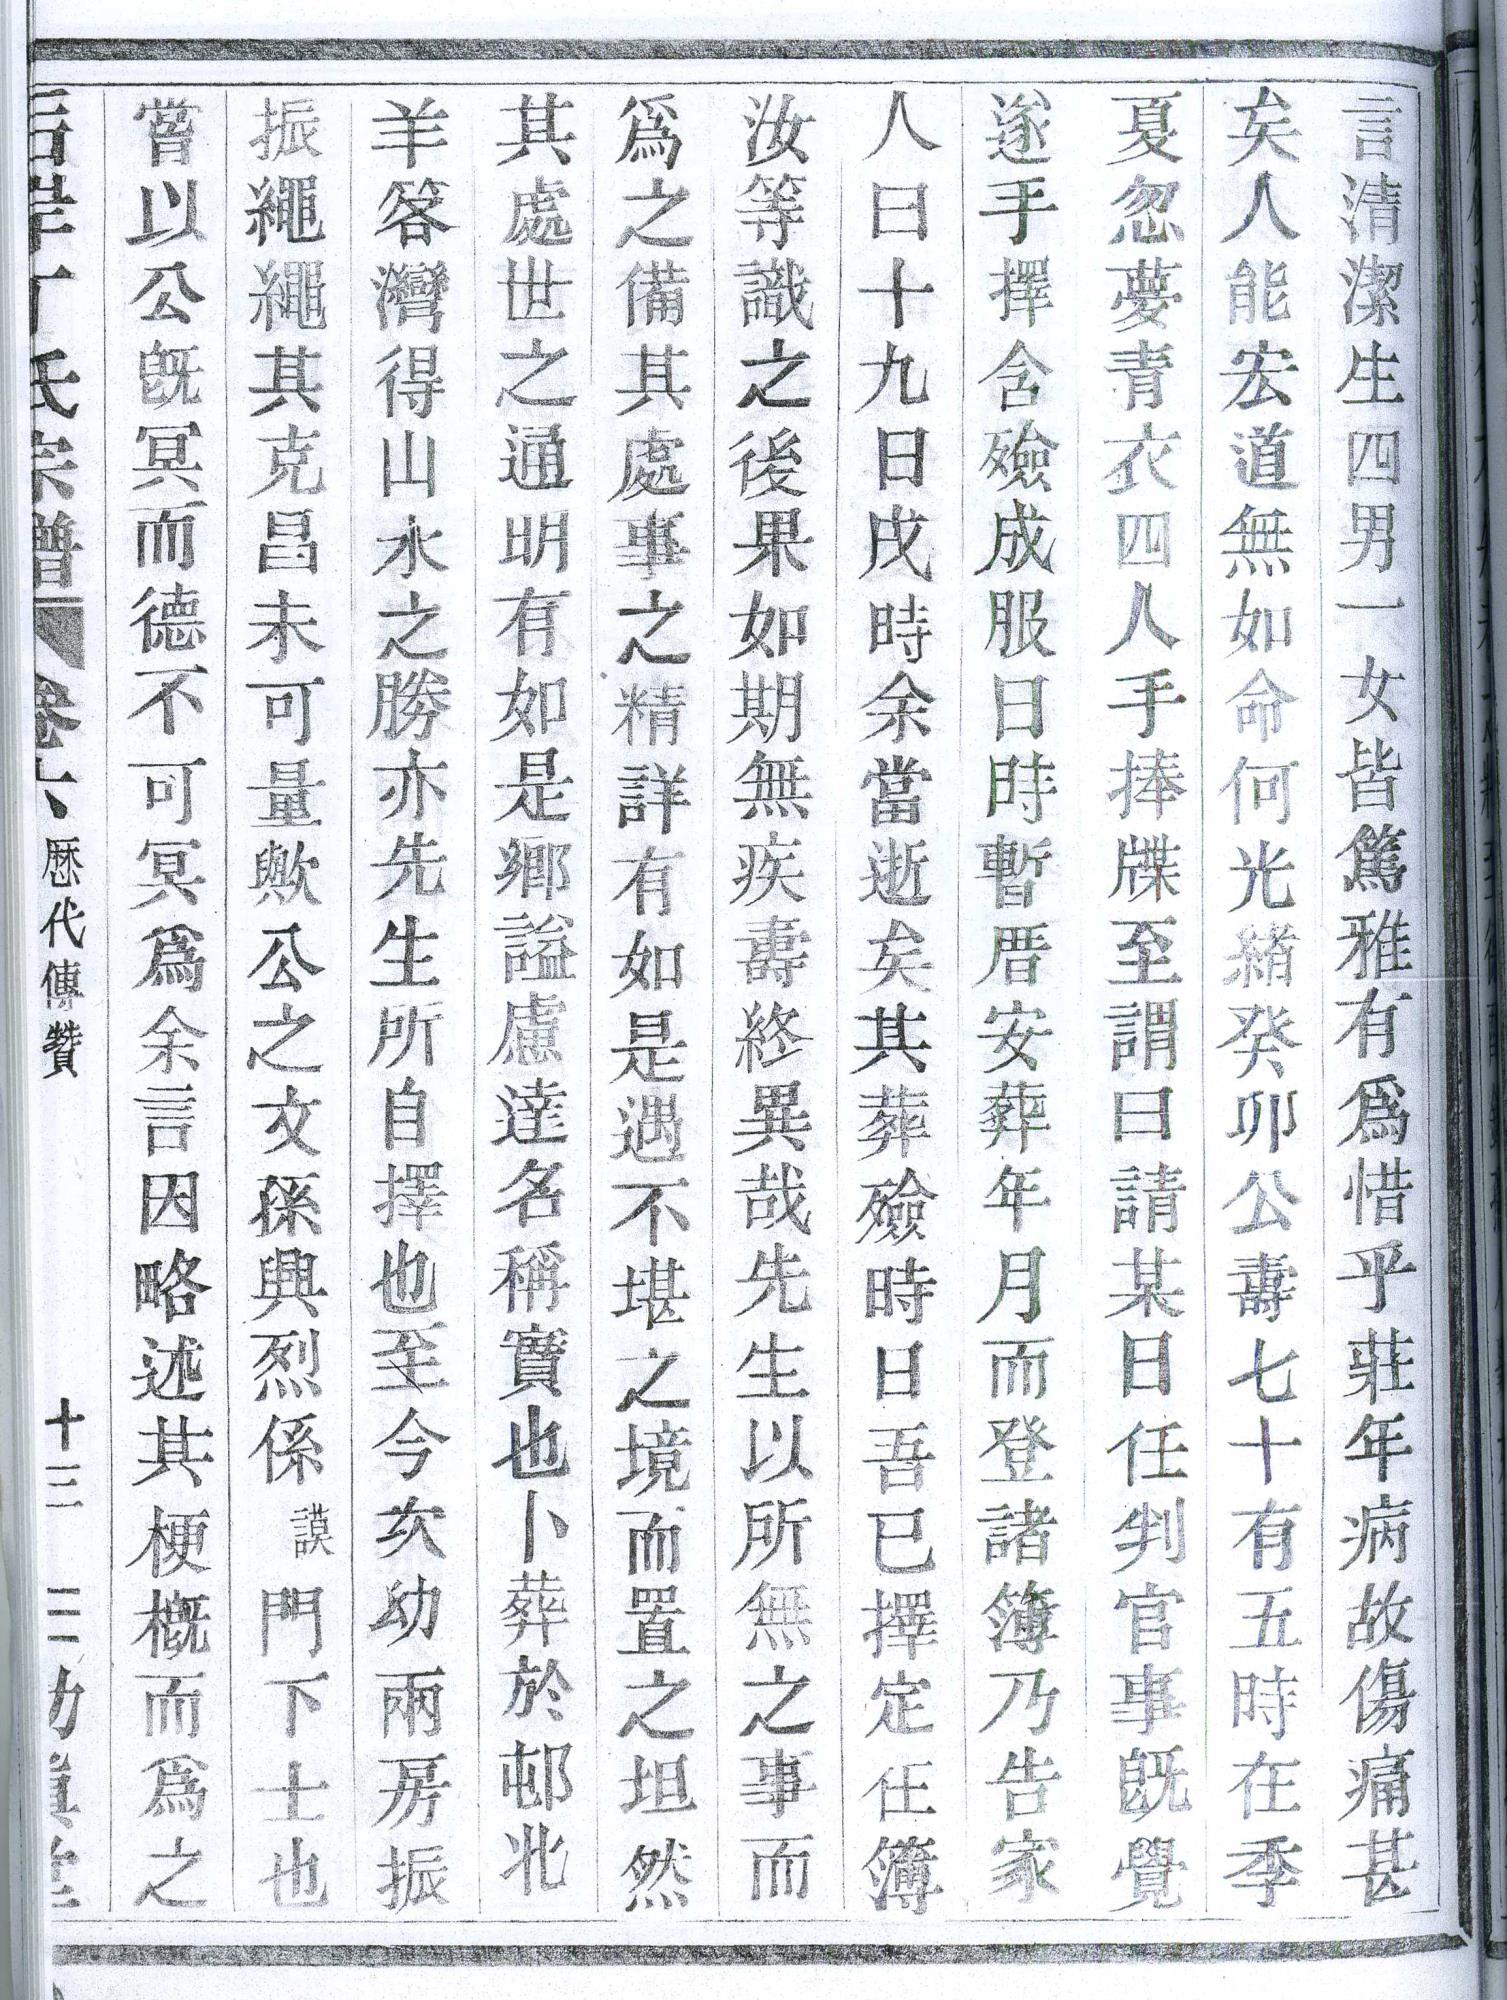 言清潔生四男一女皆篤雅有爲惜乎莊年病故傷痛甚
矣人能宏道無如命何光緒癸卯公壽七十有五時在季
夏忽夢青衣四人手捧牒至謂曰請某日任判官事既覺
遂手擇含殮成服日時暫厝安葬年月而登諸簿乃告家
人曰十九日戌時余當逝矣其葬殮時日吾已擇定在簿
汝等識之後果如期無疾壽終異哉先生以所無之事而
爲之備其處事之精詳有如是遇不堪之境而置之坦然
其處世之通明有如是鄉謚慮達名稱寶也卜葬於邨北
羊笿灣得山水之勝亦先生所自擇也至今次幼兩房振
振繩繩其克昌未可量歟公之文孫興烈係謨門下士也
嘗以公既冥而德不可冥爲余言因略述其梗槪而爲之
氏宗譜 卷六 歷代傳贊 十三